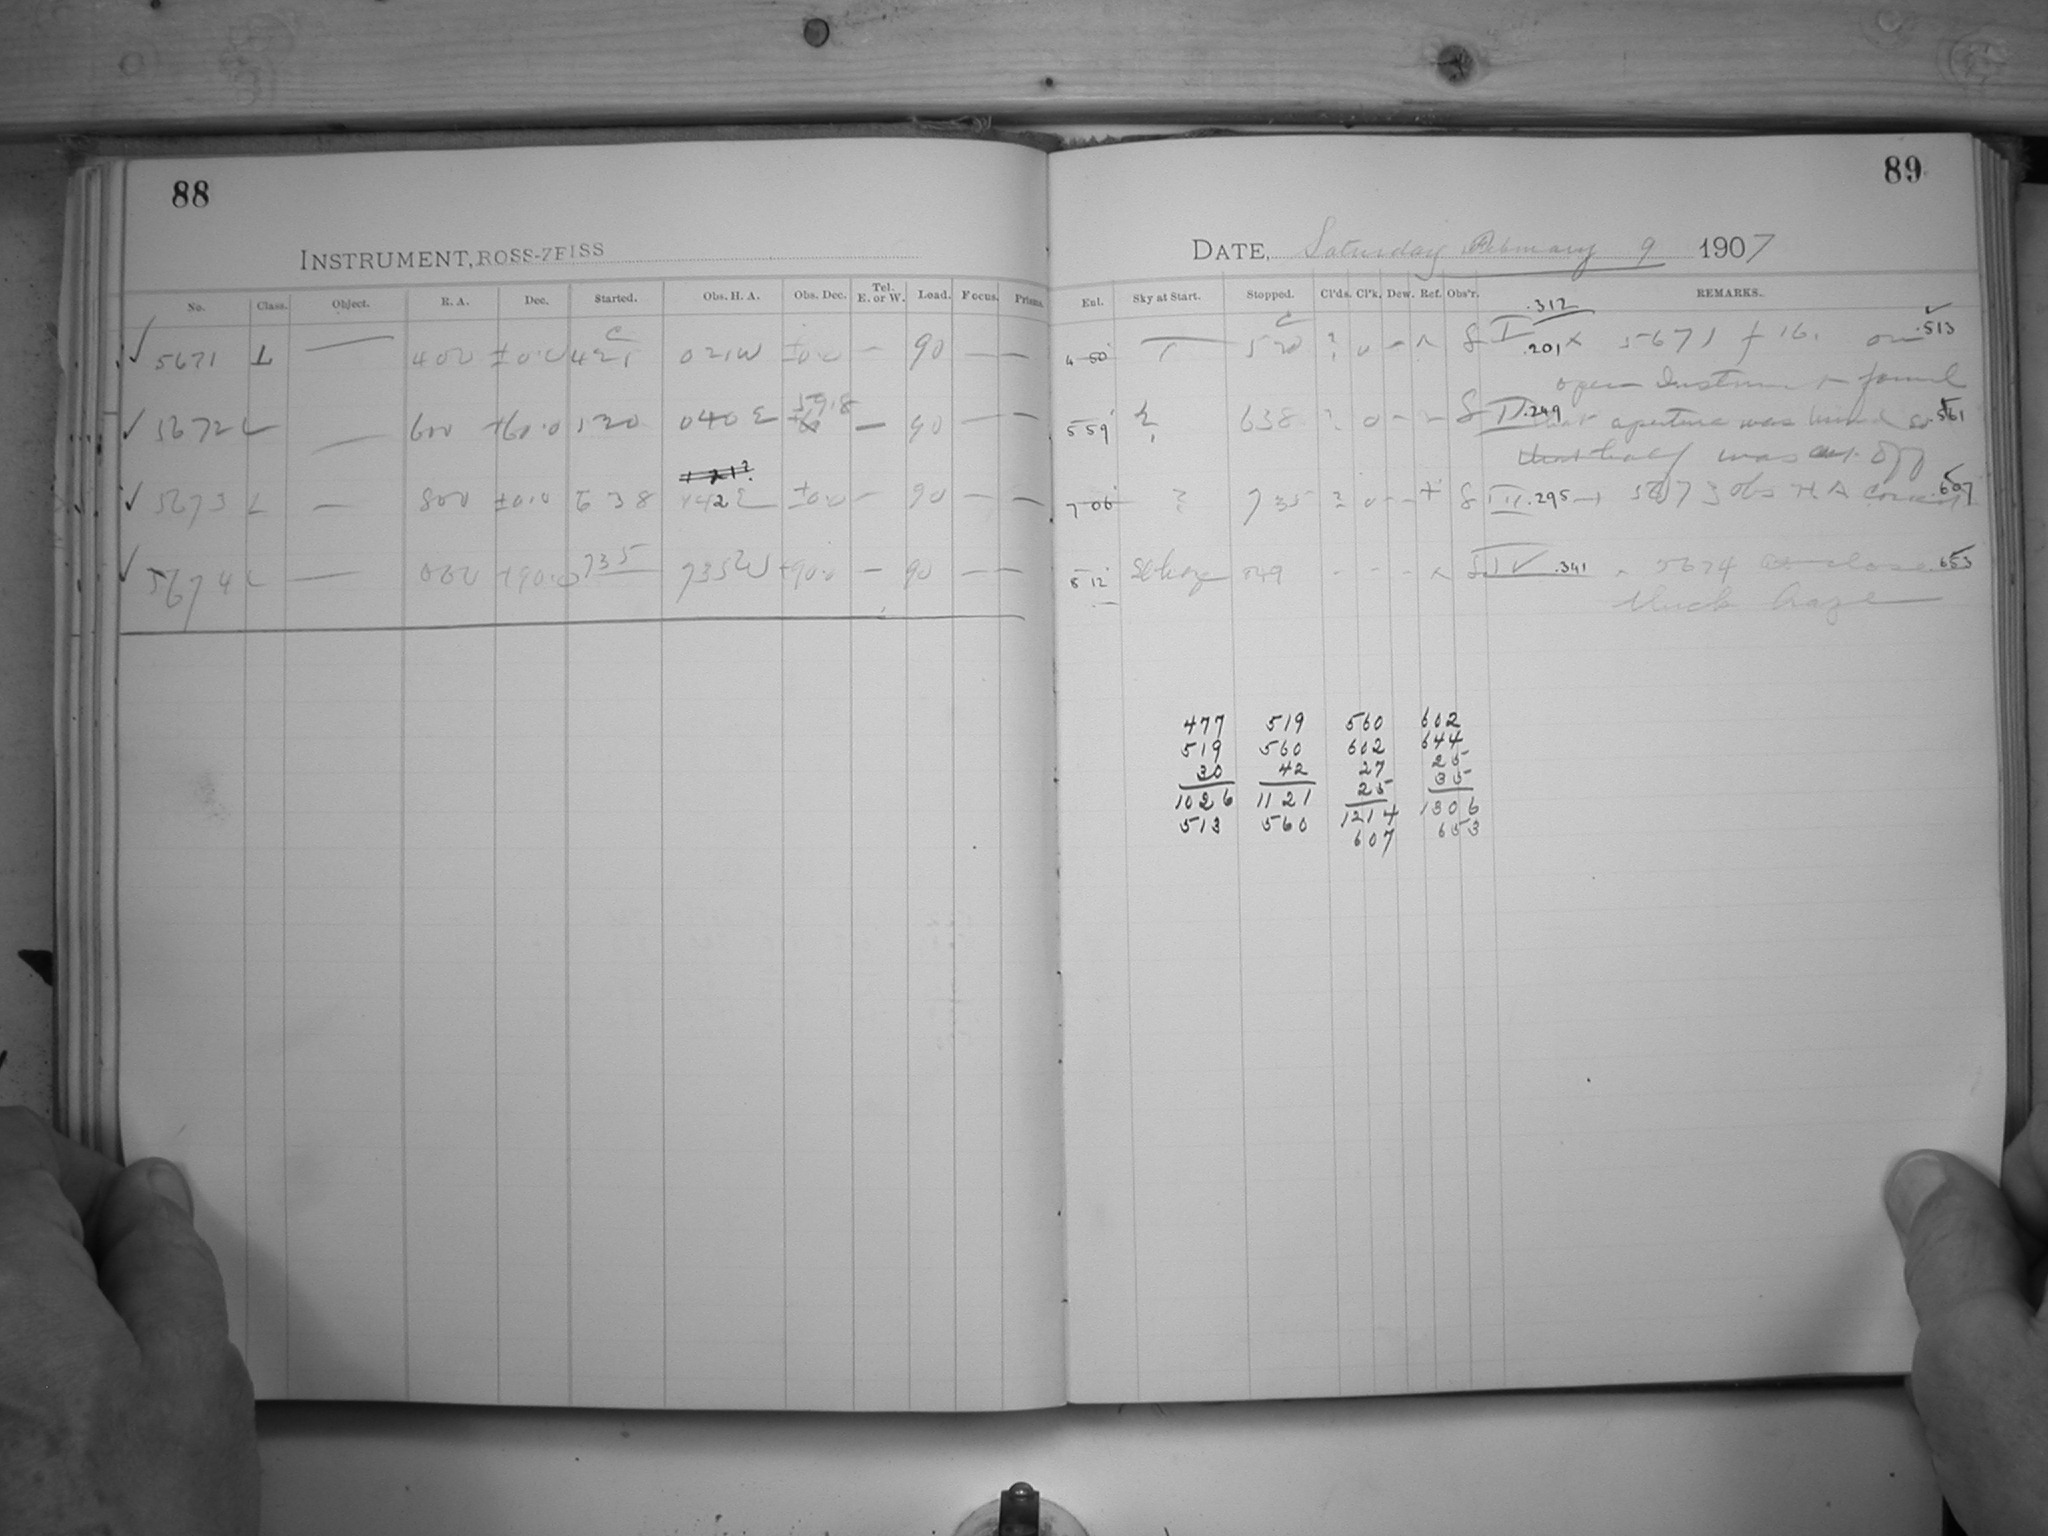 88
INSTRUMENT, ROSS-ZEISS
No. Class. Object. R. A. Dec. Started. Obs. H. A. Obs. Dec. Tel. E. or W. Load. Focus. Prisms.
✓ 5671 L — 400 ±0.0 421 021W ±0.0 — 90 — —
59.8
✓ 5672 L — 600 +60.0 520 040 E — 90 — —
1 21?
✓ 5673 L — 800 ±0.0 638 142E ±0.0 — 90 — —
✓ 5674 L — 000 +90.0 735 735W +90.0 — 90 — —
89
DATE, Saturday February 9 1907
Enl. Sky at Start. Stopped. Cl'ds. Cl'k. Dew. Ref. Obs'r. REMARKS.
.312
4 50 520 ? 0 I .201 × 5671 f 16. on .513
open Instrument found
5 59 ? 638 ? 0 II .249 that aperture was turned so .561
that half was cut off
7 06 ? 735 ? 0 — + III .295 5673 Obs H A correct .607
8 12 849 — — — IV .341 5674 close .653
thick haze
477 519 560 602
519 560 602 644
30 42 27 25
25 35
1026 1121 1214 1306
513 560 607 653